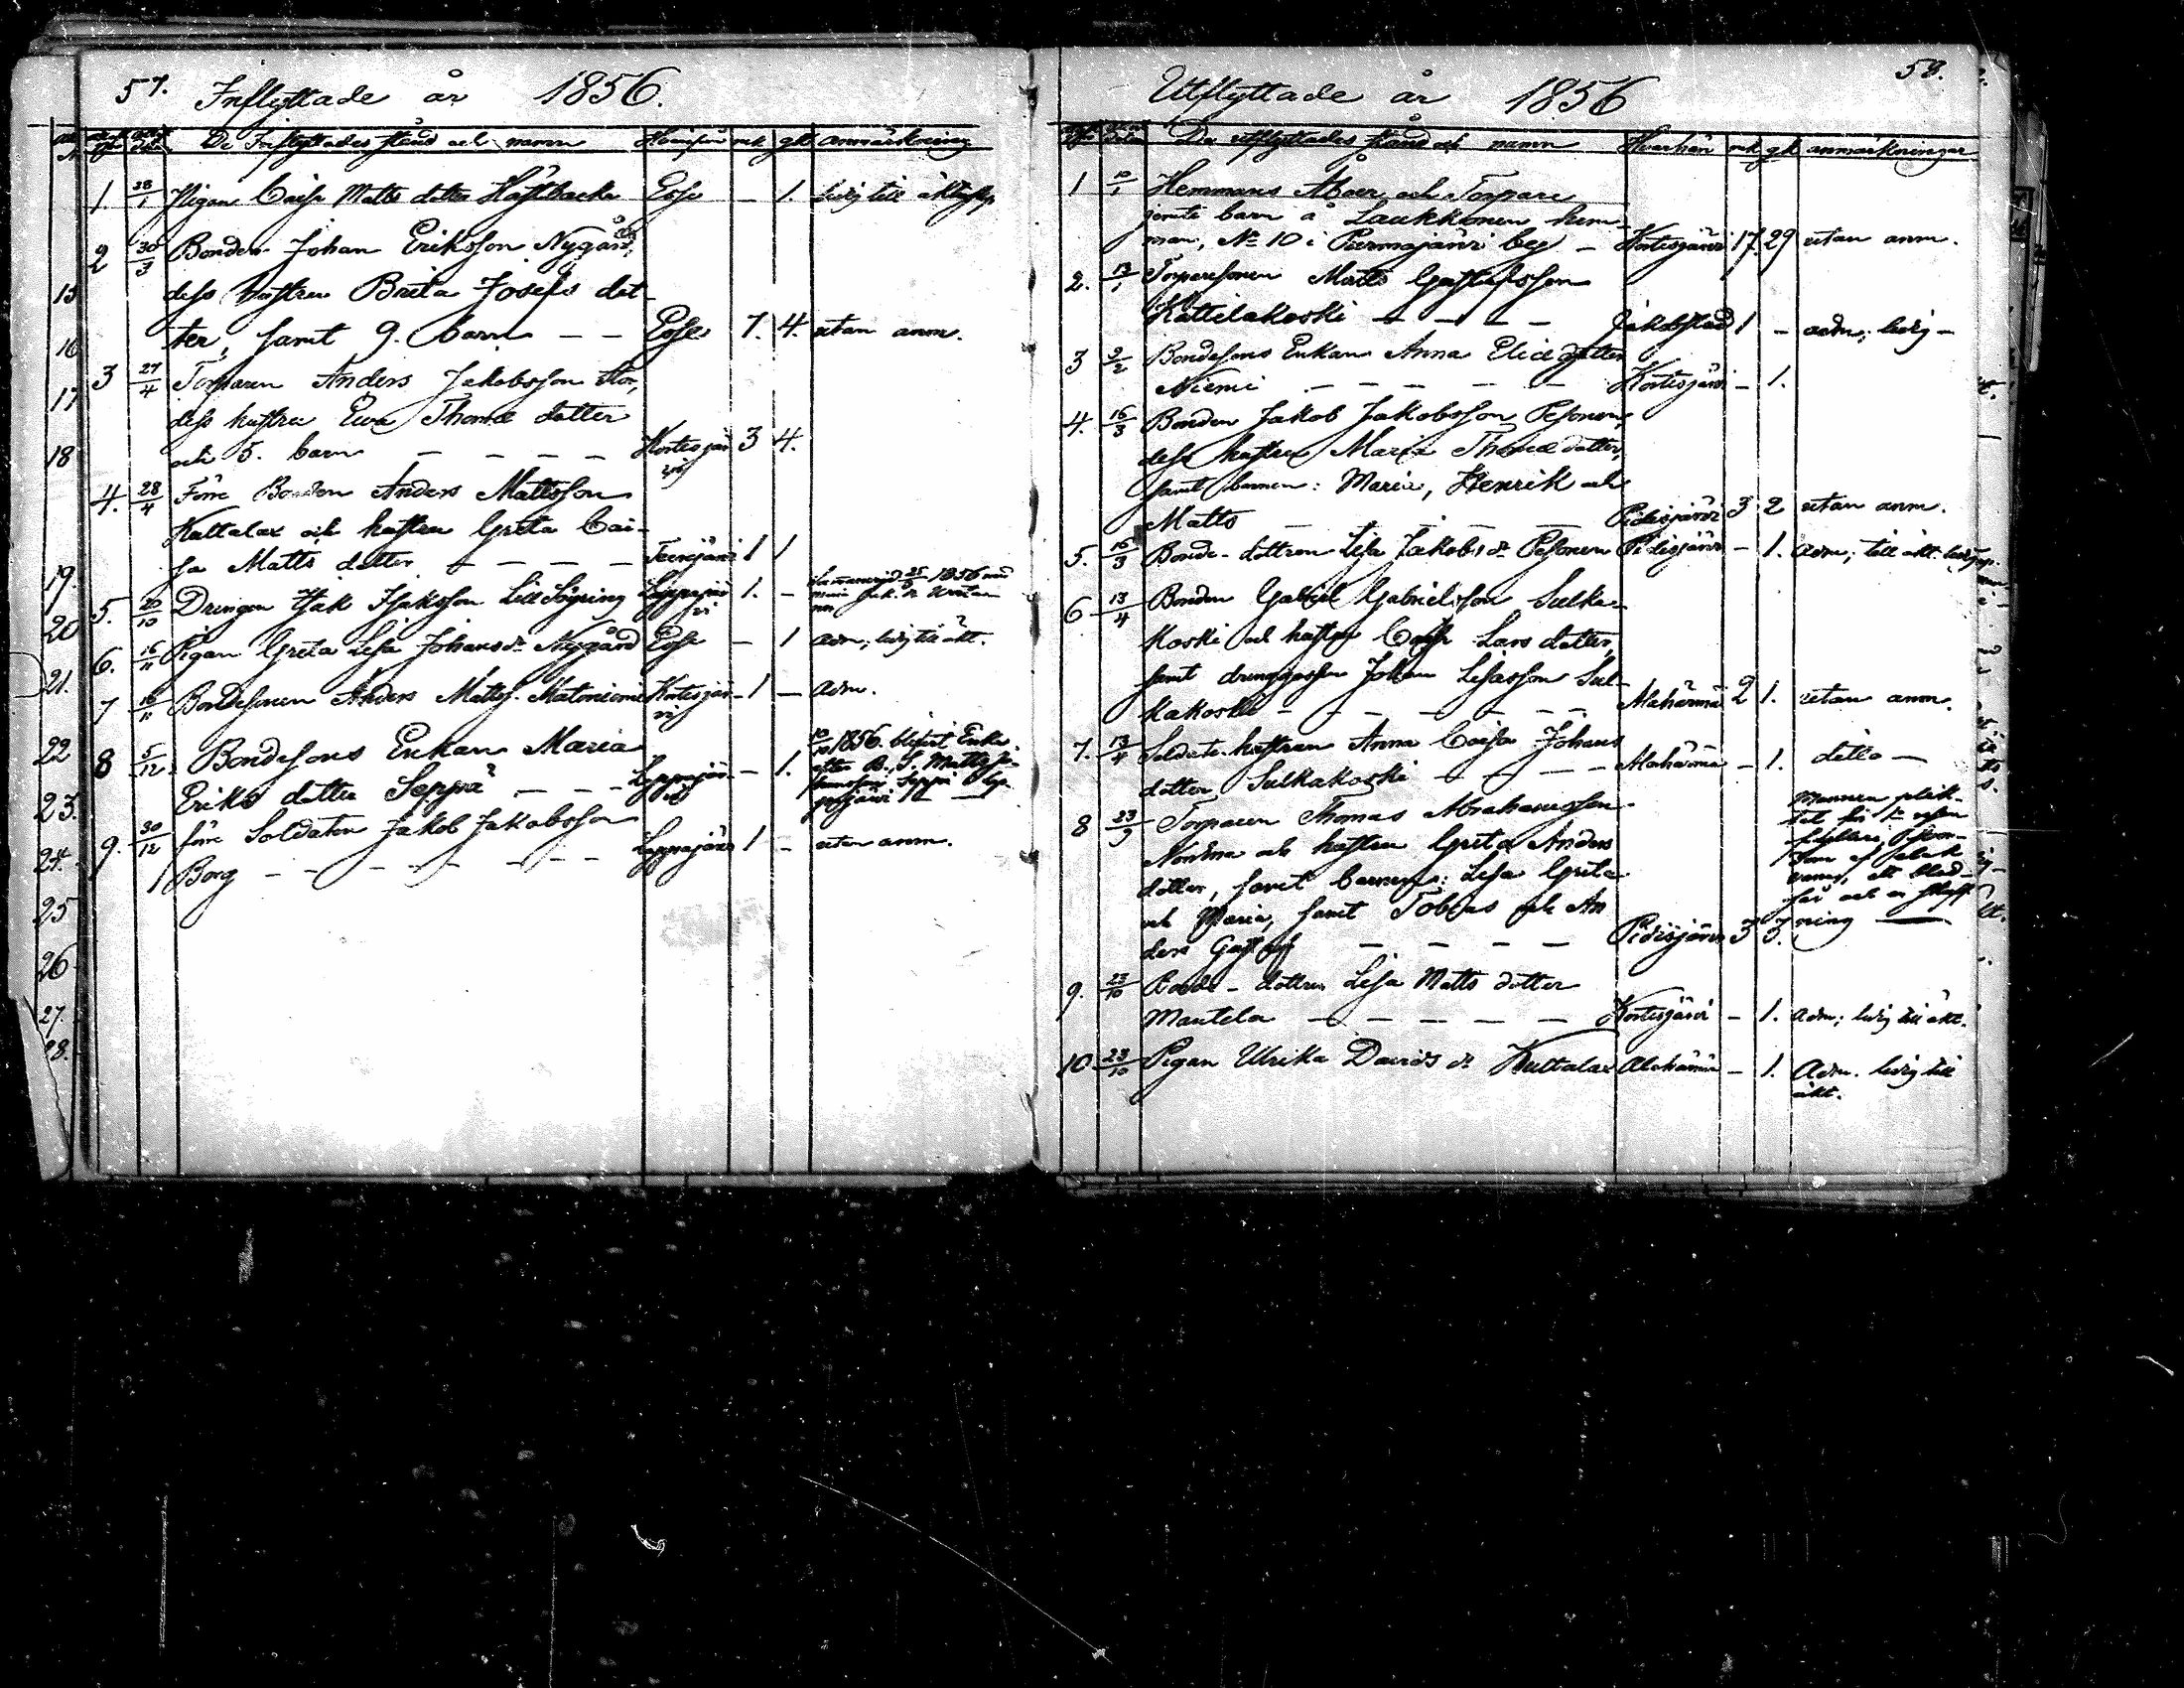 57. Inflyttade år 1856.
De Inflyttades stånd och namn mk gk anmärkning
1. 28/1 Pigan Caisa Matts dotter Håstbacka Esse – 1. ledig till äktenskap
2 30/3 Bonden Johan Eriksson Nygård,
dess hustru Brita Josefs dot-
ter, samt 9. barn – – Esse 7. 4. utan anm.
3 27/4 Torparen Anders Jakobsson Stor,
dess hustru Ewa Thomæ dotter
och 5. barn – – – – Kortesjär- 3 4.
vi
4. 28/4 Förre Bonden Anders Mattsson
Kattalax och hustrun Greta Cai-
sa Matts dotter – – – – Terijärvi 1 1
5. 20/10 Drengen Isak Isaksson Lill Sögring Lappajär- 1. –
vi 1856 med
6. 16/11 Pigan Greta Lisa Johans dr Nygård Esse – 1 adm, ledig till äkt.
7 16/11 Bondesonen Anders Matss. Matoniemi Kortesjär- 1 – adm.
vi
8 5/12 Bondesons Enkan Maria
Eriks dotter Seppä – – – Lappajär- – 1.
vi
1856. blifvit Enka
efter B. S. Matts Jo-
hansson Seppä
9. 30/12 förre Soldaten Jakob Jakobsson
Borg – – – – – – Lappajärvi 1 – utan anm.
15
16
17
18
19.
20
21.
22
23.
24.
25
26
27.
28.
Utflyttade år 1856 58.
De utflyttades stånd och namn Hvarthän mk gk anmärkningar
1 10/1 Hemmans Åboer och Torpare
jemte barn å Laukkonen hem-
man, No 10 i Purmojärvi by – Kortesjärvi 17. 29 utan anm.
2. 13/1 Torparesonen Matts Gustafsson
Kattilakoski – – – – Jakobstad 1 – adm; ledig –
3 9/2 Bondesons Enkan Anna Eliæ dotter
Niemi – – – – – Kortesjärvi – 1.
4. 16/3 Bonden Jakob Jakobsson Pesonen,
dess hustru Maria Thomæ dotter,
samt barnen: Maria, Henrik och
Matts – – – – Pidisjärvi 3 2 utan anm.
5. 16/3 Bonde-dottren Lisa Jakobs dr Pesonen Pidisjärvi – 1. adm; till äkt. ledig
6 13/4 Bonden Gabriel Gabrielsson Sulka-
koski och hustru Caisa Lars dotter,
samt drenggossen Johan Lisasson Sul-
kakoski – – – – – – – Alahärmä 2 1. utan anm.
7. 13/4 Soldats-hustrun Anna Caisa Johans
dotter Sulkakoski – – – – Alahärmä – 1. ditto –
8 23/9 Torparen Thomas Abrahamsson
Nordman och hustrun Greta Anders
dotter, samt barnen: Lisa Greta
och Maria, samt Tobias och An
ders Gustaf – – – – Pidisjärvi 3 3.
Mannen plik-
tat för 1:a resan
9. 23/10 Bonde-dottren Lisa Matts dotter
Mantela – – – – – Kortesjärvi – 1. adm; ledig till äkt.
10 23/10 Pigan Ulrika Davids dr Kultalax Alahärmä – 1. Adm. ledig till
äkt.